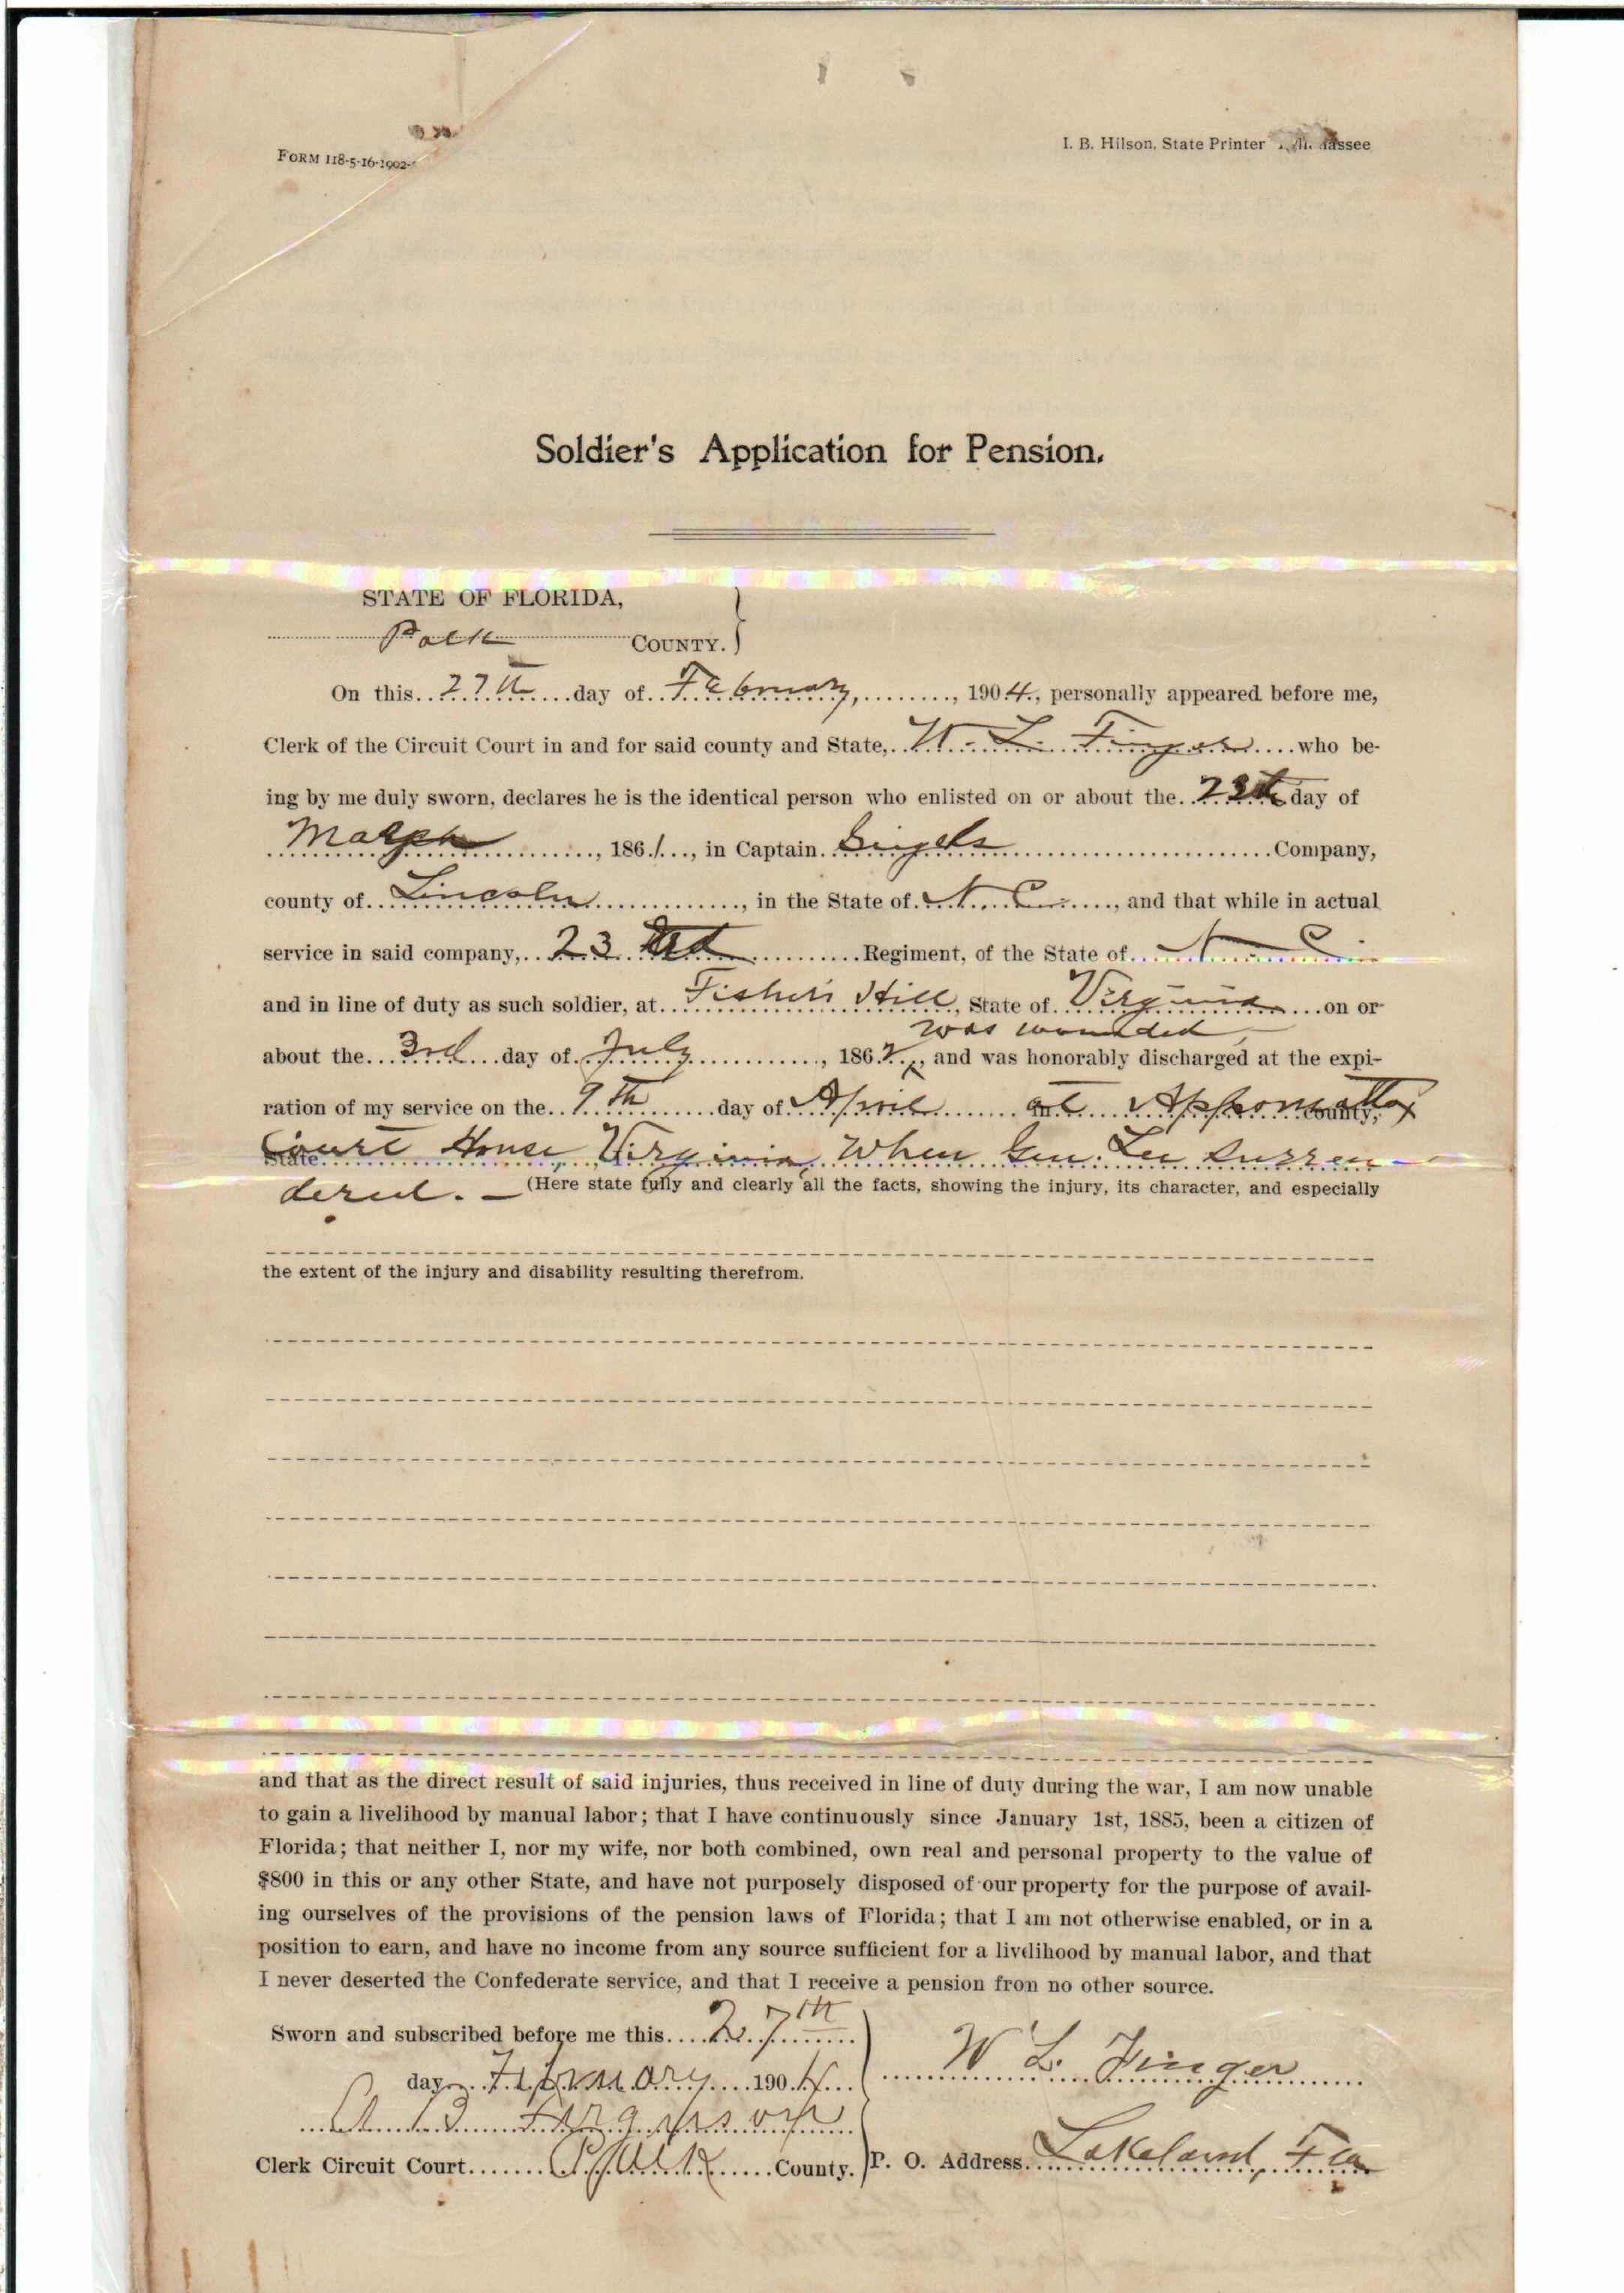 FORM 118-5-16-1902-
I. B. Hilson, State Printer
Soldier's Application for Pension.
STATE OF FLORIDA,
Polk COUNTY.
On this 27th day of February, 1904, personally appeared before me,
Clerk of the Circuit Court in and for said county and State, W. L. Finger who be-
ing by me duly sworn, declares he is the identical person who enlisted on or about the day of
March, 1861, in Captain Company,
county of Lincoln, in the State of N. C., and that while in actual
service in said company, 23 Regiment, of the State of N. C.
and in line of duty as such soldier, at Fishers Hill, State of Virginia on or
was wounded
about the 3rd day of July, 1862, and was honorably discharged at the expi-
ration of my service on the 9th day of April at Appomattox county,
State Court House, Virginia, When Gen. Lee surren
dered. — (Here state fully and clearly all the facts, showing the injury, its character, and especially
the extent of the injury and disability resulting therefrom.
and that as the direct result of said injuries, thus received in line of duty during the war, I am now unable
to gain a livelihood by manual labor; that I have continuously since January 1st, 1885, been a citizen of
Florida; that neither I, nor my wife, nor both combined, own real and personal property to the value of
$800 in this or any other State, and have not purposely disposed of our property for the purpose of avail-
ing ourselves of the provisions of the pension laws of Florida; that I am not otherwise enabled, or in a
position to earn, and have no income from any source sufficient for a livelihood by manual labor, and that
I never deserted the Confederate service, and that I receive a pension from no other source.
Sworn and subscribed before me this 27th
day February 1904
W L. Finger
A B Ferguson
Clerk Circuit Court Polk County.
P. O. Address Lakeland, Fla